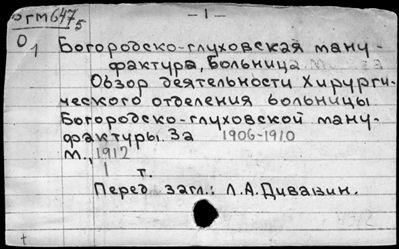 - 1 -
ргм 647/5
О1
Богородско-глуховская ману-
фактура, Больница
Обзор деятельности Хирурги-
ческого отделения больницы
Богородско-глуховской ману-
фактуры. За 1906-1910
М., 1912
1 т.
Перед загл.: Л.А.Дивавин.